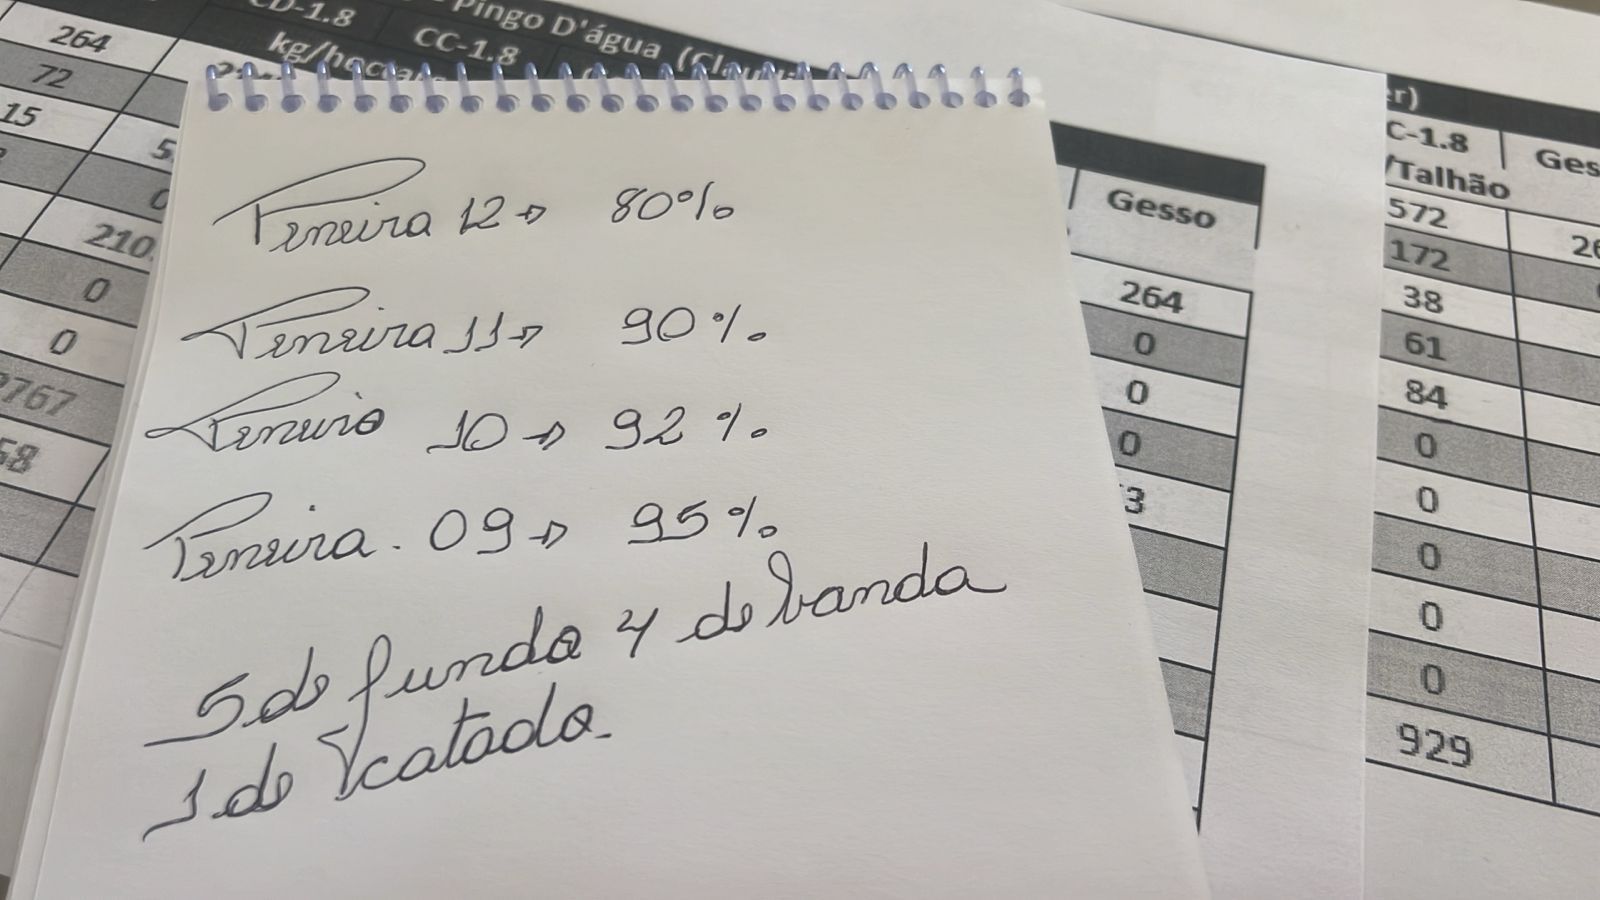 Peneira 12 → 80%
Peneira 11 → 90%
Peneira 10 → 92%
Peneira . 09 → 95%
5 de fundo 4 de banda
1 de catado.
Pingo D'água
CD-1.8
CC-1.8
264
72
15
210
0
0
58
Gesso
264
0
0
0
C-1.8
/Talhão
572
172
38
61
84
0
0
0
0
0
929